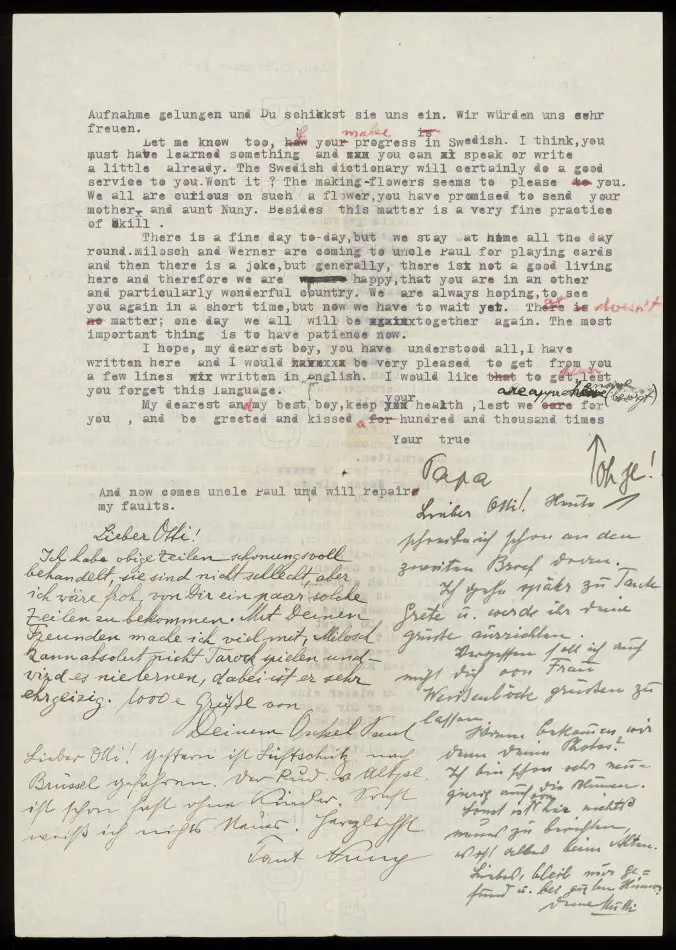 Aufnahme gelungen und Du schikkst sie uns ein. Wir würden uns sehr
freuen.
Let me know too, how your make progress is in Swedish. I think,you
must have learned something and xxx you can xi speak or write
a little already. The Swedish dictionary will certainly do a good
service to you.Wont it ? The making-flowers seems to please to you.
We all are curious on such a flower,you have promised to send your
mother, and aunt Nuny. Besides this matter is a very fine practice
of skill .
There is a fine day to-day,but we stay at home all the day
round.Milosch and Werner are coming to uncle Paul for playing cards
and then there is a joke,but generally, there isx not a good living
here and therefore we are happy,that you are in an other
and particularly wonderful country. We are always hoping,to see
you again in a short time,but now we have to wait yet. There is doesn't
no matter; one day we all will be together again. The most
important thing is to have patience now.
I hope, my dearest boy, you have understood all,I have
written here and I would be very pleased to get from you
a few lines xix written in English. I would like that to get,lest
you forget this language.
My dearest and my best boy,keep your xxx health ,lest we care for
you , and be greeted and kissed a for hundred and thousand times
Your true
Papa
Oh je!
And now comes uncle Paul und will repaire
my faults.
Lieber Otti!
Ich habe obige Zeilen schonungsvoll
behandelt, sie sind nicht schlecht, aber
ich wäre froh, von Dir ein paar solche
Zeilen zu bekommen. Mit Deinen
Freunden mache ich viel mit, Milosch
kann absolut nicht Tarock spielen und
wird es nie lernen, dabei ist er sehr
ehrgeizig. 1000e Grüße von
Deinem Onkel Paul
Lieber Otti! Gestern ist Lüftschitz nach
Brüssel gefahren. Der Rud. a. Altgl.
ist schon fast ohne Kinder. Sonst
weiß ich nichts Neues. Herzlichst
Tant Nuny
Lieber Otti! Heute
schreibe ich schon an den
zweiten Brief daran.
Ich gehe später zu Tante
Grete u. werde ihr deine
Grüße ausrichten.
Vergessen soll ich auch
nicht dich von Frau
grüßen zu
lassen.
Wann bekommen wir
denn deine Photos?
Ich bin schon sehr neu-
gierig auch von die Blumen.
Sonst ist hier nichts
neues zu berichten,
es ist alles beim Alten.
Liebes, bleib mir ge-
sund u. bei guten Humor
Deine Mutti